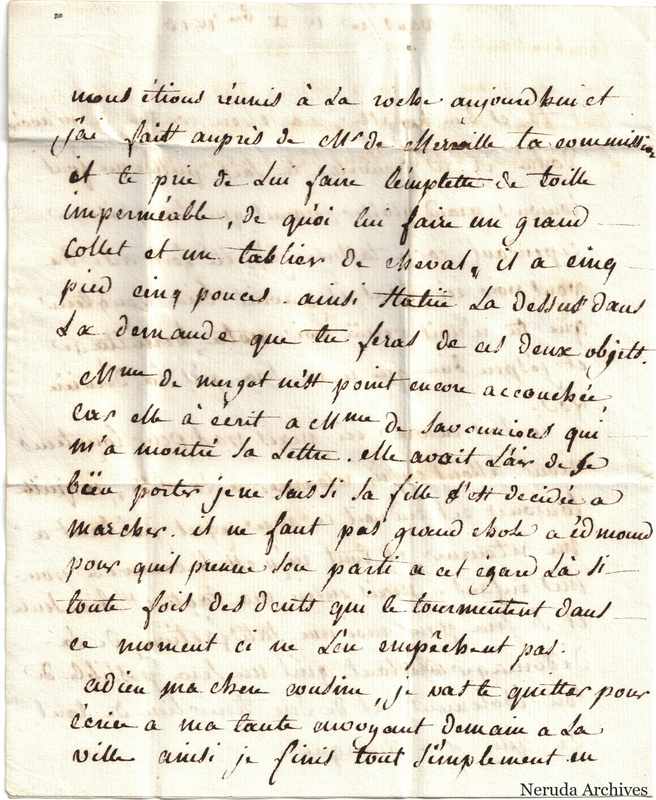 nous étions réunis à La roche aujourdhui et
j'ai fait auprès de Mr de Merville ta commission
et te prie de Lui faire l'emplette de toille
imperméable, de quoi lui faire un grand
Collet et un tablier de cheval, il a cinq
pied cinq pouces. ainsi Statüe La dessus dans
La demande que tu feras de ces deux objets.
Mme de mergot n'est point encore accouchée
car elle à écrit a Mme de Savonnieres qui
m'a montré sa Lettre. elle avait L'air de se
bien porter je ne sais si sa fille s'est decidée a
marcher. il ne faut pas grand chose a édmond
pour qu'il prenne son parti a cet égard Là si
toute fois des dents qui le tourmentent dans
ce moment ci ne L'en empêchent pas.
adieu ma chere cousine, je vas te quitter pour
écrire a ma tante envoyant demain a La
ville ainsi je finis tout simplement en
Neruda Archives